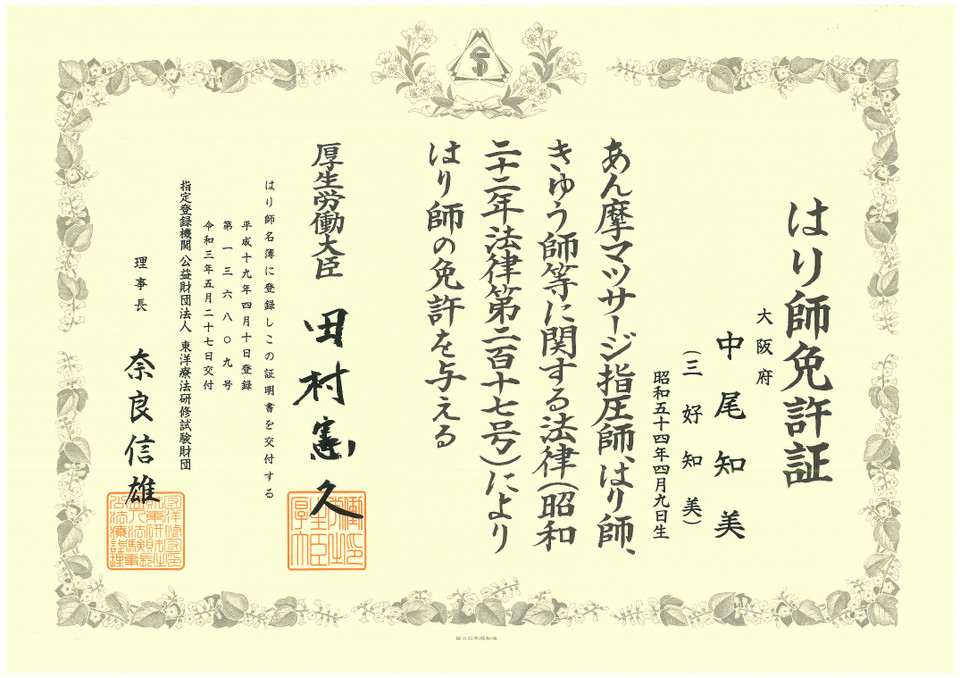 はり師免許証
大阪府
中尾知美
（三好知美）
昭和五十四年四月九日生
あん摩マツサージ指圧師、はり師、
きゆう師等に関する法律（昭和
二十二年法律第二百十七号）により
はり師の免許を与える
厚生労働大臣 田村憲久
はり師名簿に登録しこの証明書を交付する
平成十九年四月十日登録
第一三六八〇九号
令和三年五月二十七日交付
指定登録機関 公益財団法人 東洋療法研修試験財団
理事長 奈良信雄